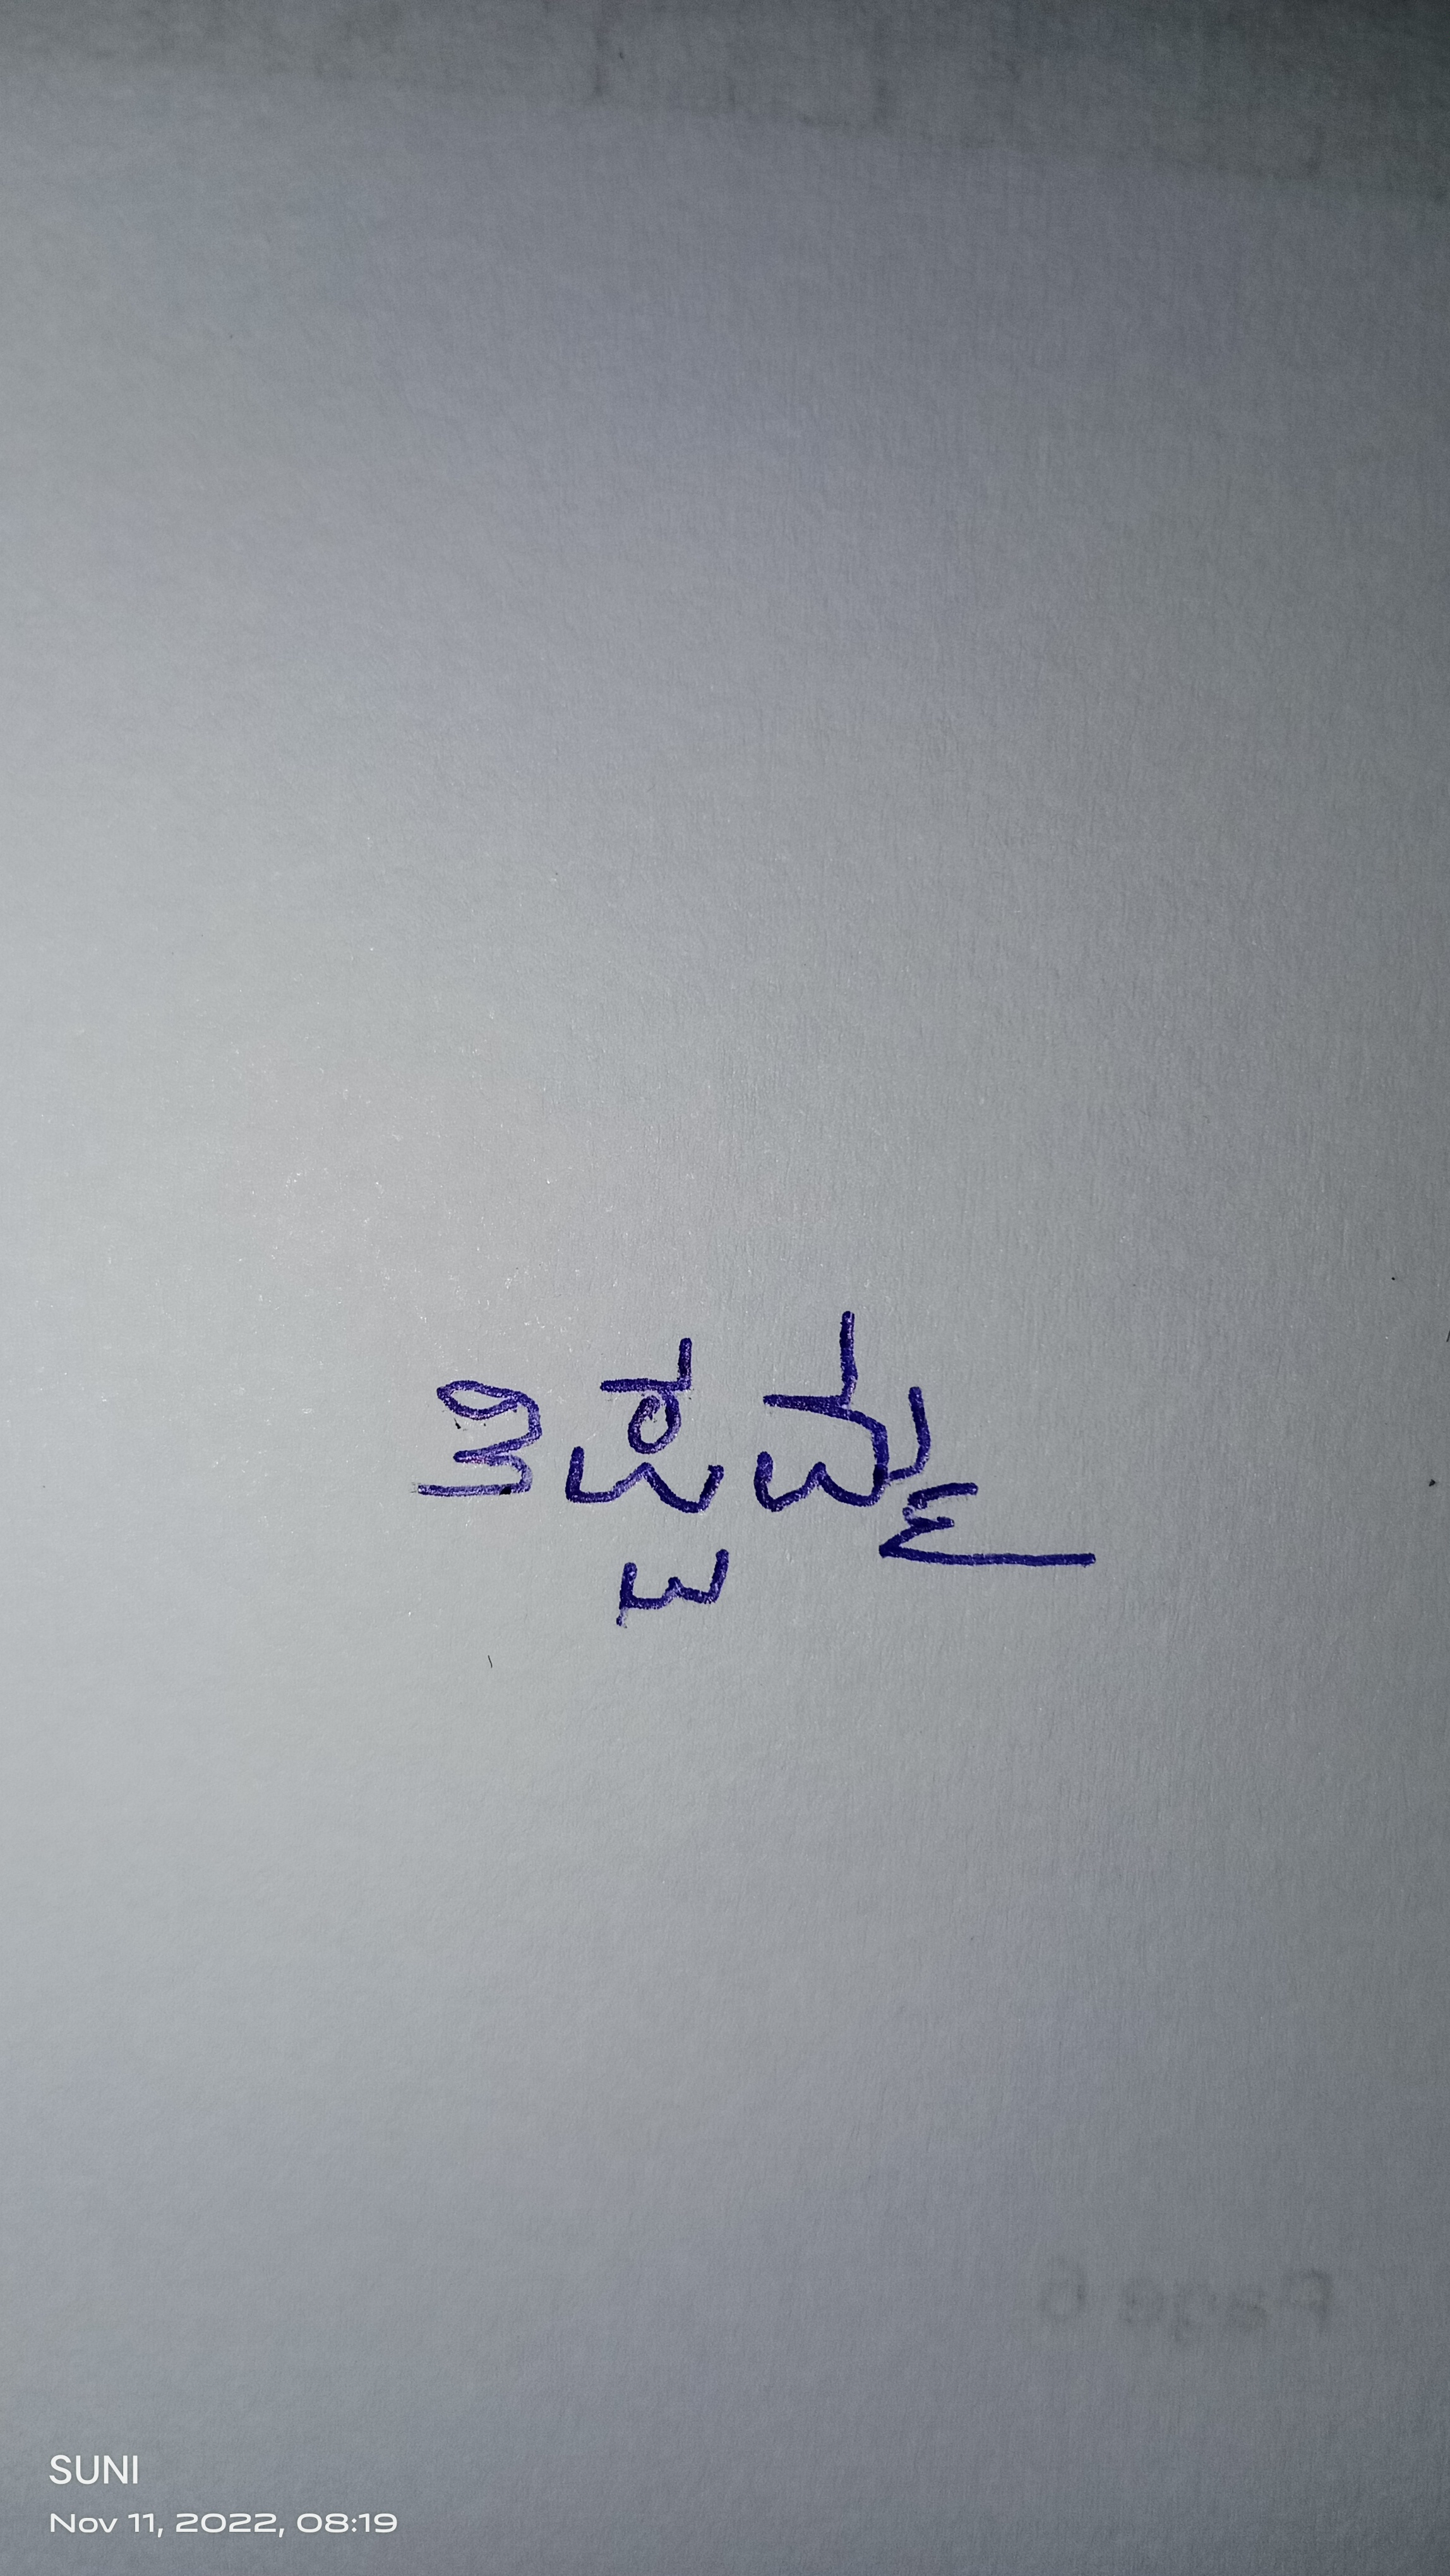 ತಿಪ್ಪಮ್ಮ
SUNI
Nov 11, 2022, 08:19